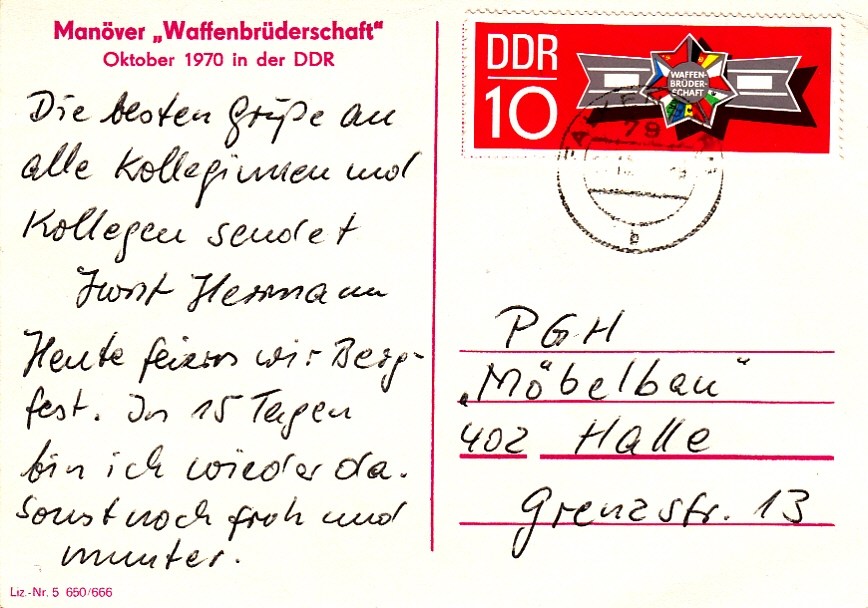 Manöver „Waffenbrüderschaft“
Oktober 1970 in der DDR
Die besten Grüße an
alle Kolleginnen und
Kollegen sendet
Horst Herrmann
Heute feiern wir Berg-
fest. In 15 Tagen
bin ich wieder da.
Sonst noch froh und
munter.
Liz.-Nr. 5 650/666
DDR
10
WAFFEN-
BRÜDER-
SCHAFT
79
b
PGH
„Möbelbau“
402 Halle
Grenzstr. 13